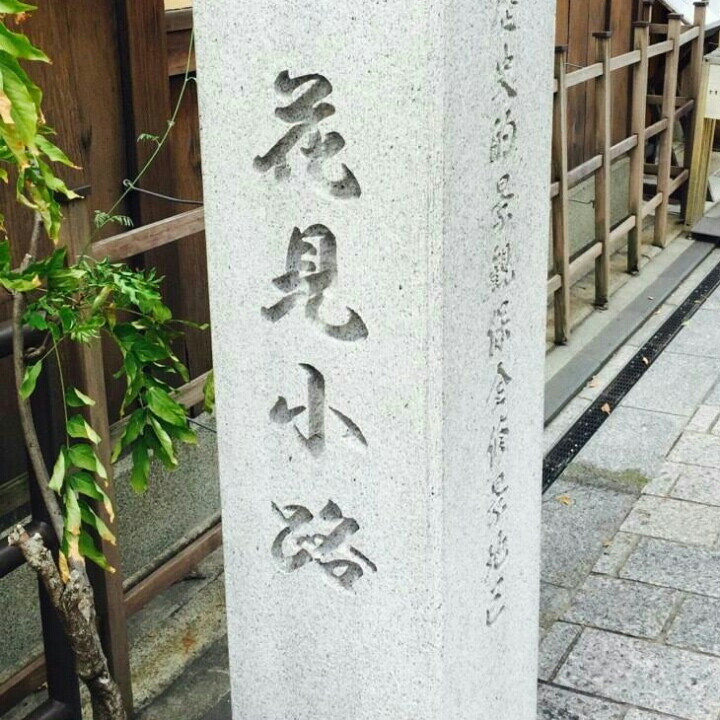 花見小路
歴史的景観保全修景地区